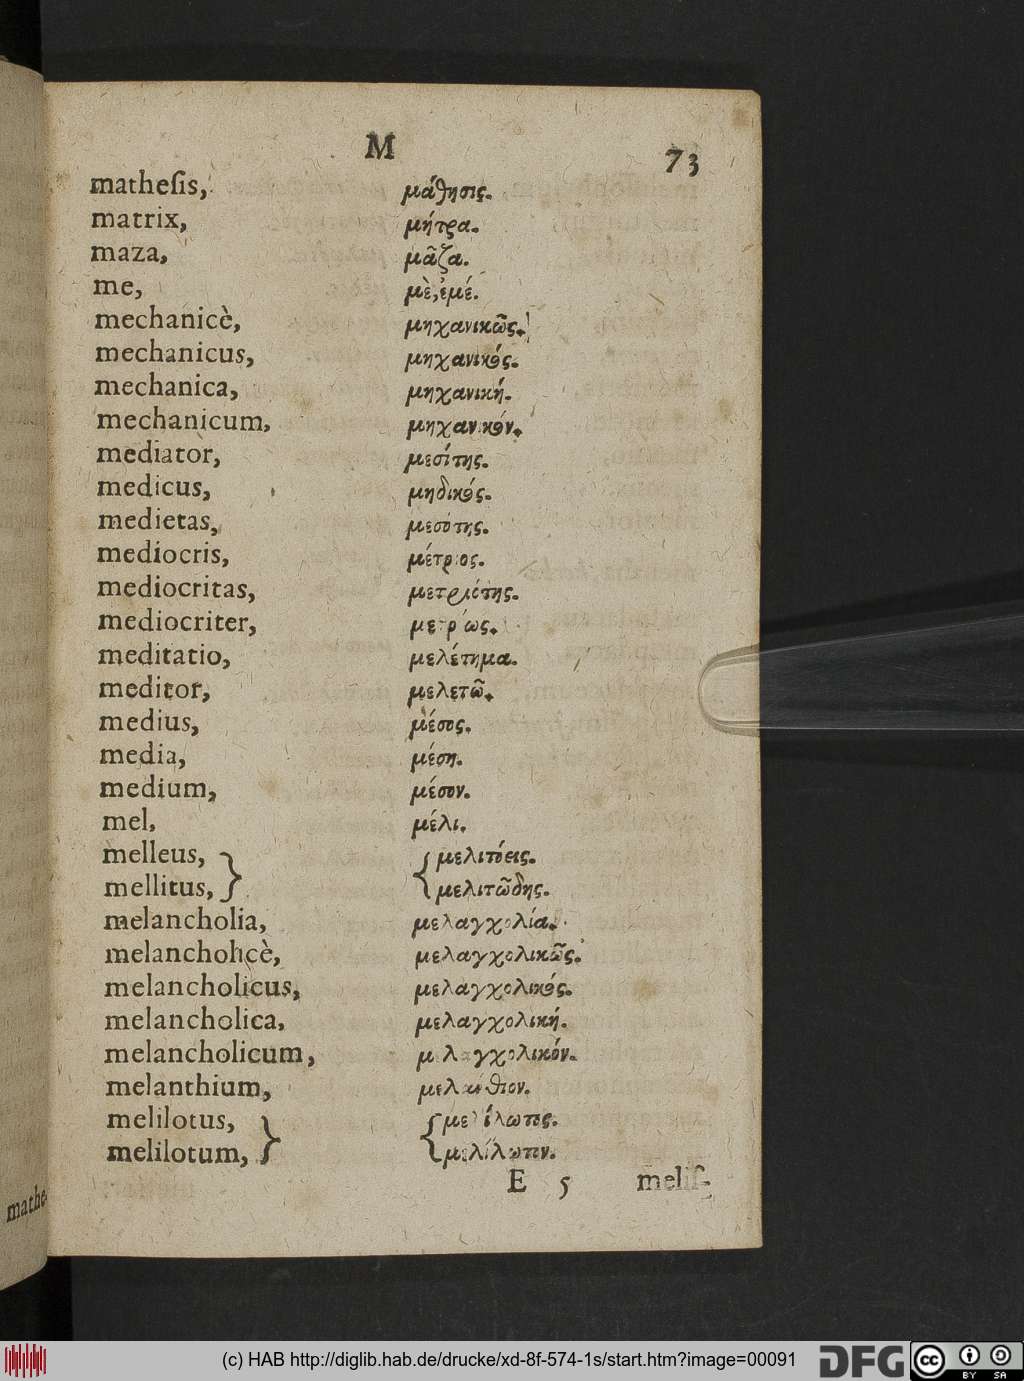 M 73
matheſis, μάθησις.
matrix, μήτρα.
maza, μᾶζα.
me, μὲ, ἐμέ.
mechanicè, μηχανικῶς.
mechanicus, μηχανικός.
mechanica, μηχανική.
mechanicum, μηχανικόν.
mediator, μεσίτης.
medicus, μηδικός.
medietas, μεσότης.
mediocris, μέτριος.
mediocritas, μετριότης.
mediocriter, μετρίως.
meditatio, μελέτημα.
meditor, μελετῶ.
medius, μέσος.
media, μέση.
medium, μέσον.
mel, μέλι.
melleus, } { μελιτόεις.
mellitus, } { μελιτῶδης.
melancholia, μελαγχολία.
melancholicè, μελαγχολικῶς.
melancholicus, μελαγχολικός.
melancholica, μελαγχολική.
melancholicum, μελαγχολικόν.
melanthium, μελάνθιον.
melilotus, } { μελίλωτος.
melilotum, } { μελίλωτον.
E 5 meliſ-
mathe-
(c) HAB http://diglib.hab.de/drucke/xd-8f-574-1s/start.htm?image=00091
DFG cc BY SA